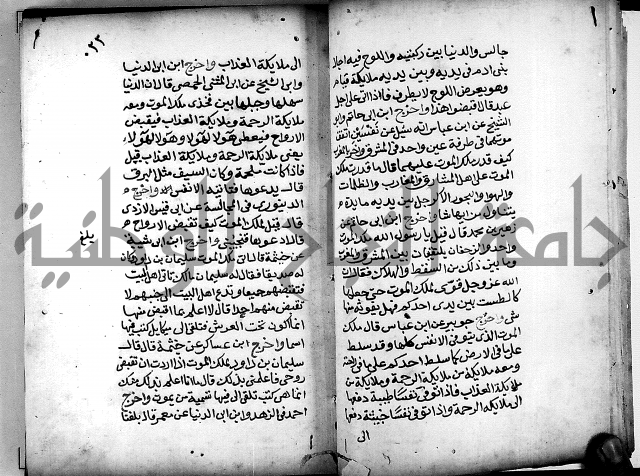 جالس والدنيا بين ركبتيه واللوح فيه اجال
بنى ادم فى يديه وبين يديه ملايكة قيام
وهو يعرض اللوح لا يطرف فاذا اتى على اجل
عبد قال اقبضوا هذا واخرج ابن ابى حاتم وابو
الشيخ عن ابن عباس انه سئل عن نفسين اتفق
موتهما فى طرفة عين واحد فى المشرق واخر بالمغرب
كيف قدرة ملك الموت عليهما قال ما قدرة ملك
الموت على اهل المشارق والمغارب والظلمات
والهوا والبحور الا كرجل بين يديه مايدة
يتناول من ايها شا واخرج ابن ابى حاتم عن
زهير بن محمد قال قيل يا رسول الله ملك الموت
واحد والزحفان يلتقيان بين المشرق والمغرب
وما بين ذلك من السقط والهلاك فقال ان
الله عز وجل قوى ملك الموت حتى جعلها
كالطست بين يدى احدكم فهل يفوته منها
شى واخرج جويبر عن ابن عباس قال ملك
الموت الذى يتوفى الانفس كلها وقد سلط
على ما فى الارض كما سلط احدكم على ما فى راحته
ومعه ملايكة من ملايكة الرحمة وملايكة من
ملايكة العذاب فاذا توفى نفسا طيبة دفعها
الى ملايكة الرحمة واذا توفى نفسا خبيثة دفعها
الى
٠٢٢
الى ملايكة العذاب واخرج ابن ابى الدنيا
وابو الشيخ عن ابى المثنى الحمصى قال ان الدنيا
سهلها وجبلها بين فخذى ملك الموت ومعه
ملايكة الرحمة وملايكة العذاب فيقبض
الارواح فيعطى هولا لهولا وهولا لهولا
يعنى ملايكة الرحمة وملايكة العذاب قيل
فاذا كانت ملحمة وكان السيف مثل البرق
قال يدعوها فتاتيه الانفس واخرج
الدينورى فى المجالسة عن ابى قيس الازدى
قال قيل لملك الموت كيف تقبض الارواح
قال ادعوها فتجيبنى واخرج ابن ابى شيبة
عن خيثمة قال اتى ملك الموت سليمان بن داود وكان
له صديقا فقال له سليمان مالك تاتى اهل البيت
فتقبضهم جميعا وتدع اهل البيت الى جنبهم لا
تقبض منهم احدا قال لا اعلم بما اقبض منها
انما اكون تحت العرش فتلقى الى صكاك فيها
اسما واخرج ابن عساكر عن خيثمة قال قال
سليمان بن داود لملك الموت اذا اردت ان تقبض
روحى فاعلمنى بذلك قال ما انا اعلم بذلك منك
انما هى كتب تلقى الى فيها تسمية من يموت واخرج
احمد فى الزهد وابن ابى الدنيا عن معمر قال بلغنا
بلغ
جامعة الرياض الوطنية